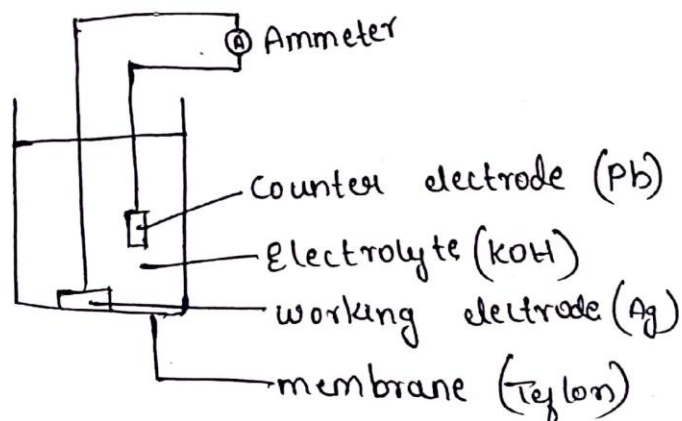 A Ammeter
Counter electrode (Pb)
Electrolyte (KOH)
working electrode (Ag)
membrane (Teflon)